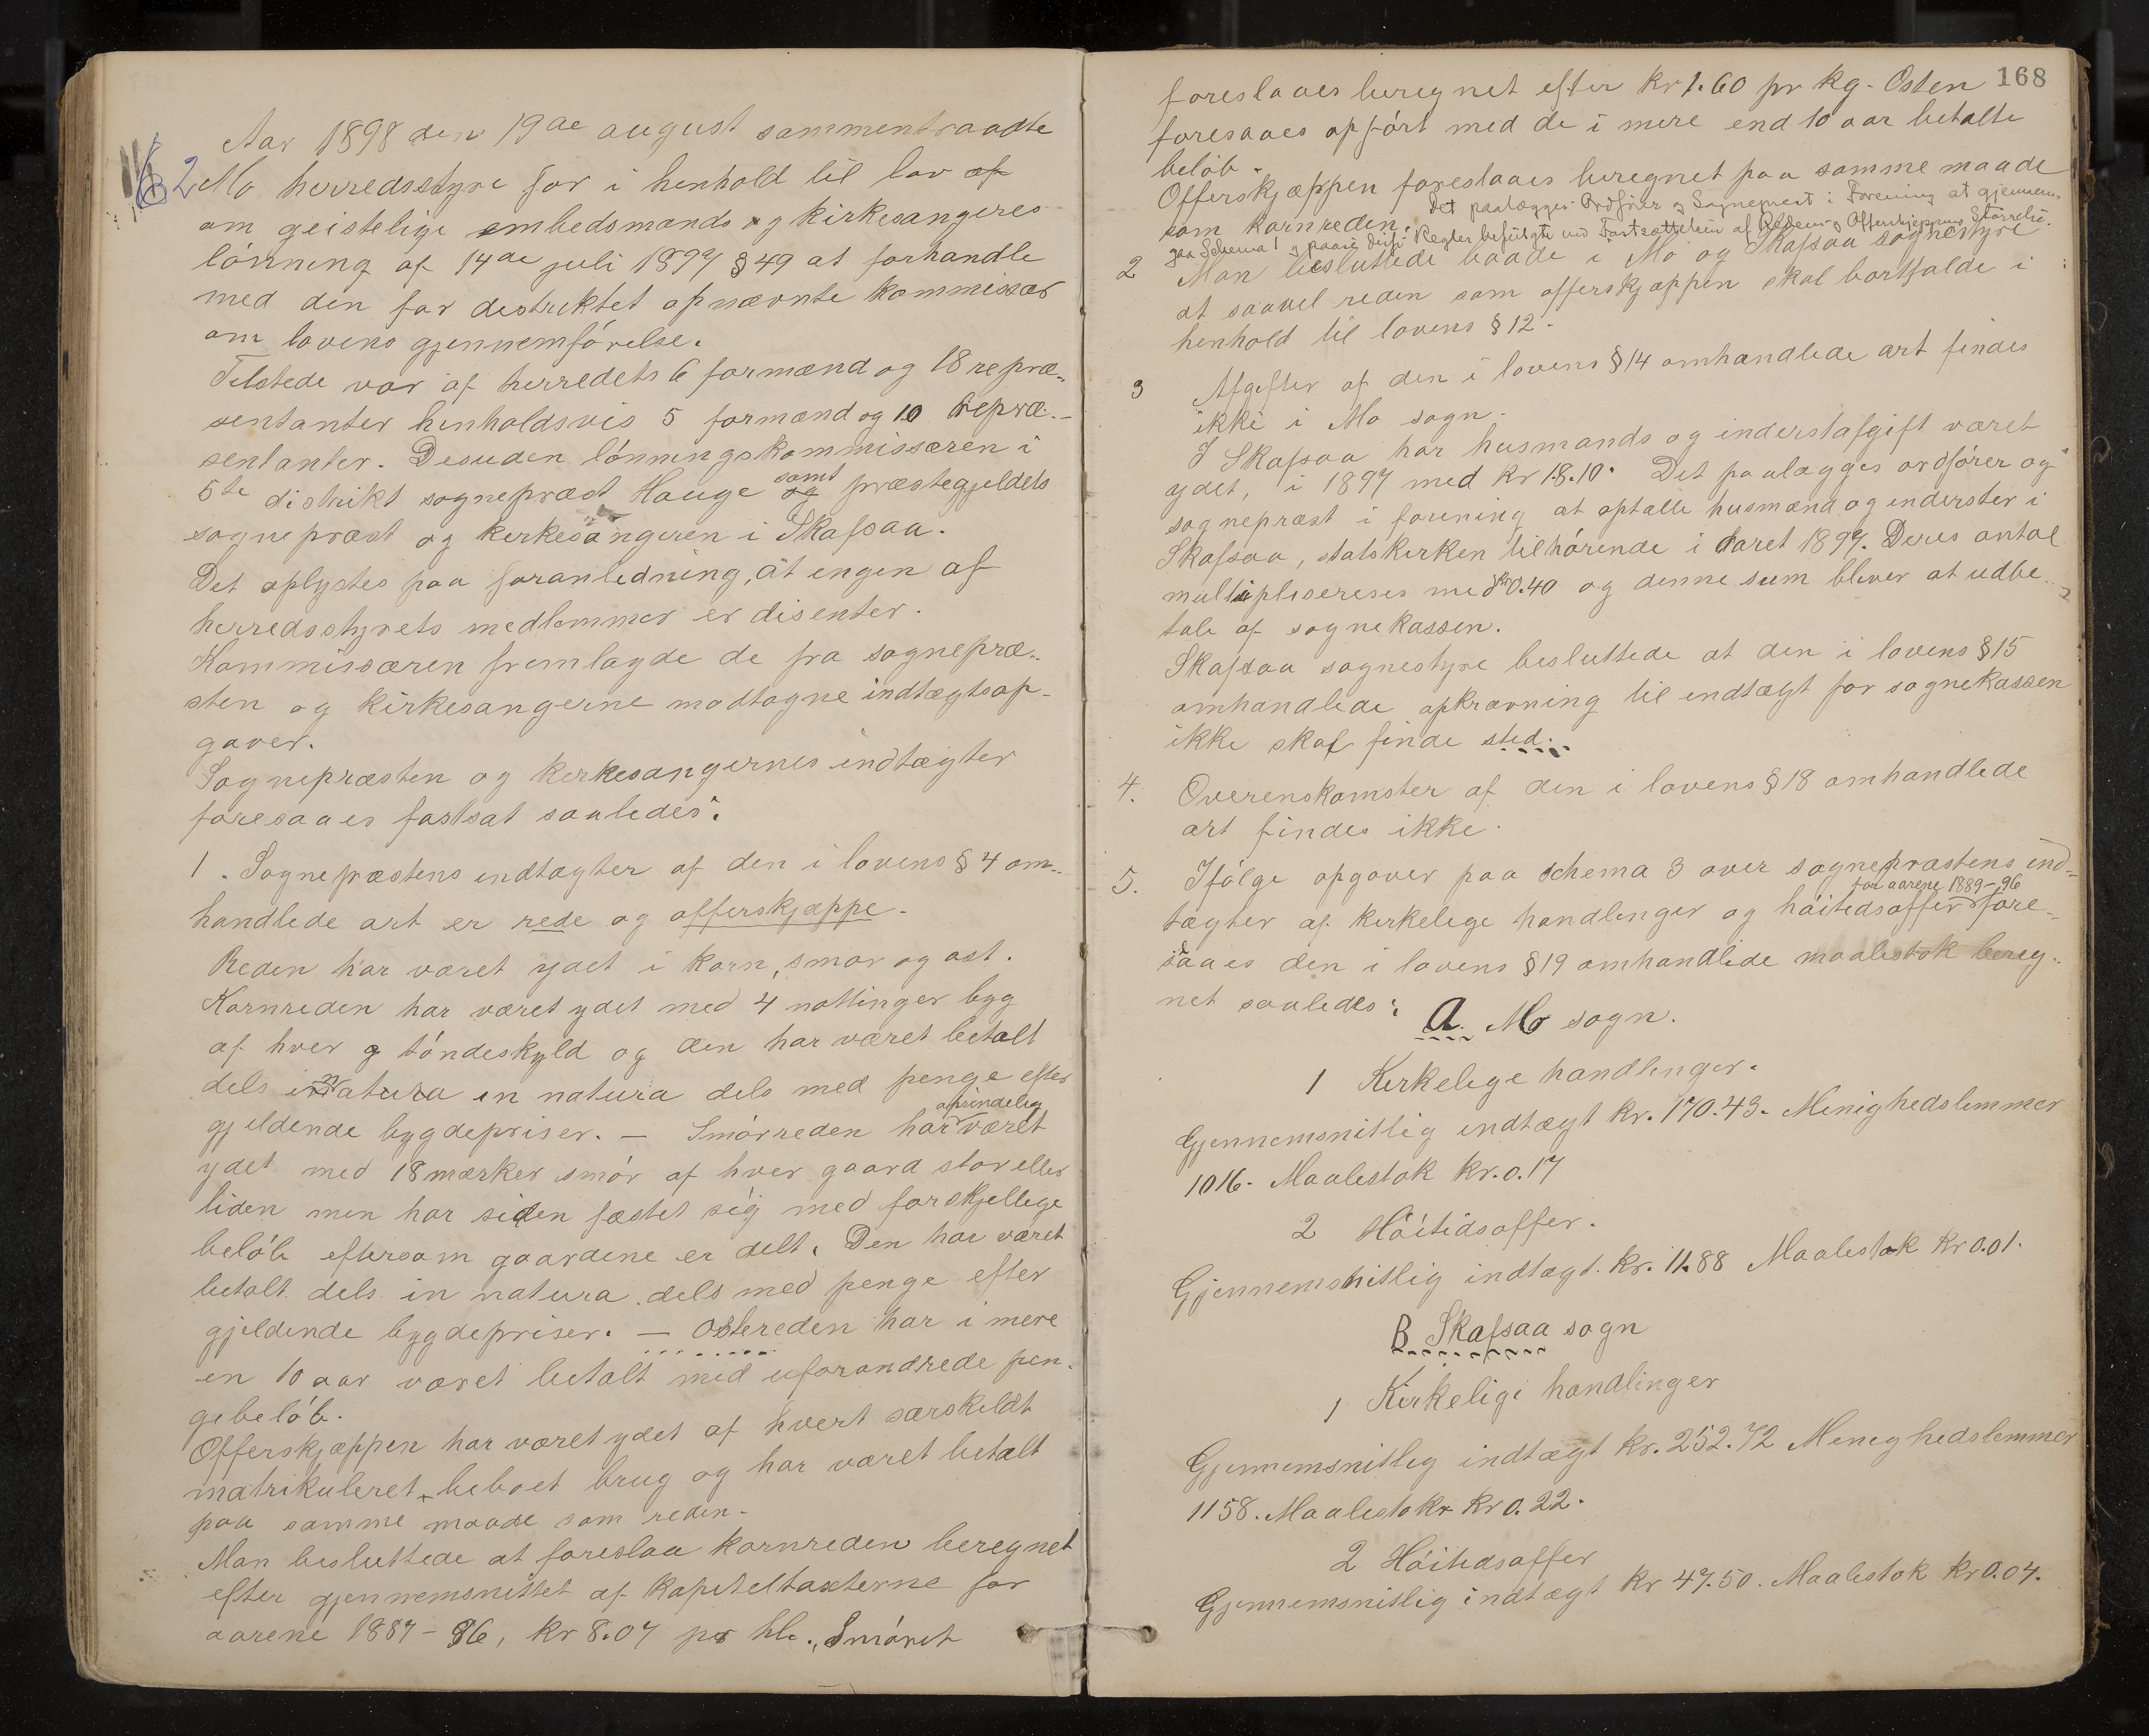 Aar 1898 den 19de august sammentraadte
62 Mo herredsstyre for i henhold til lov af
om geistelige embedsmænds og kirkesangeres
lönning af 14de juli 1897 § 49 at forhandle
med den for destriktet opnævnte kommissær
om lovens gjennemförelse.
Tilstede var af herredets 6 formænd og 18 repræ-
sentanter henholdsvis 5 formænd og 10 repræ-
sentanter. Desuden lönningskommissæren i
5te distrikt sognepræst Hauge samt præstegjeldets
sognepræst og kirkesangeren i Skafsaa.
Det oplystes paa foranledning, at ingen af
herredsstyrets medlemmer er disenter.
Kommissæren fremlagde de fra sognepræ-
sten og kirkesangerne modtagne indtægtsop-
gaver.
Sognepræsten og kirkesangernes indtægter
foresaaes fastsat saaledes:
1. Sognepræstens indtægter af den i lovens § 4 om-
handlede art er rede og offerskjæppe.
Reden har været ydet i korn, smør og ost.
Kornreden har været ydet med 4 nottinger byg
af hver töndeskyld og den har været betalt
dels in natura dels med penge efter
gjeldende bygdepriser. — Smörreden har oprindelig været
ydet med 18 mærker smör af hver gaard stor eller
liden men har siden fæstet sig med forskjellige
belöb eftersom gaardene er delt. Den har været
betalt dels in natura dels med penge efter
gjeldende bygdepriser. — Ostereden har i mere
en 10 aar været betalt med uforandrede pen-
gebelöb.
Offerskjæppen har været ydet af hvert særskildt
matrikuleret beboet brug og har været betalt
paa samme maade som reden.
Man besluttede at foreslaa kornreden beregnet
efter gjennemsnittet af kapiteltaxterne for
aarene 1887-96, kr 8.07 pr hl. Smöret
168
foreslaaes beregnet efter kr 1.60 pr kg. Osten
foresaaes opfört med de i mere end 10 aar betalte
belöb.
Offerskjæppen foreslaaes beregnet paa samme maade
som kornreden. Det paalægges Ordförer og Sogneprest i Forening at gjennem-
gaa Schema 1 og paase disse Regler befulgte ved Fastsættelsen af Redens og Offerskjeppens Störrelse.
2 Man besluttede baade i Mo og Skafsaa sognestyre
at saavel reden som offerskjæppen skal bortfalde i
henhold til lovens § 12.
3 Afgifter af den i lovens § 14 omhandlede art findes
ikke i Mo sogn.
I Skafsaa har husmands og inderstafgift været
ydet, i 1897 med kr 18.10. Det paalægges ordförer og
sognepræst i forening at optælle husmænd og inderster i
Skafsaa, statskirken tilhörende i aaret 1897. Deres antal
multiplisereses med kr 0.40 og denne sum bliver at udbe-
tale af sognekassen.
Skafsaa sognestyre besluttede at den i lovens § 15
omhandlede opkrævning til indtægt for sognekassen
ikke skal finde sted.
4. Overenskomster af den i lovens § 18 omhandlede
art findes ikke.
5. Ifölge opgaver paa schema 3 over sognepræstens ind-
tægter af kirkelige handlinger og höitidsoffer for aarene 1889-96 fore-
saaes den i lovens § 19 omhandlede maalestok bereg-
net saaledes:
A. Mo sogn.
1 Kirkelige handlinger.
Gjennemsnitlig indtægt kr. 170.43. Menighedslemmer
1016. Maalestok kr. 0.17
2 Höitidsoffer.
Gjennemsnitlig indtægt kr. 11.88 Maalestok kr 0.01.
B Skafsaa sogn
1 Kirkelige handlinger
Gjennemsnitlig indtægt kr. 252.72 Menighedslemmer
1158. Maalestok kr 0.22.
2 Höitidsoffer
Gjennemsnitlig indtægt kr 47.50. Maalestok kr 0.04.